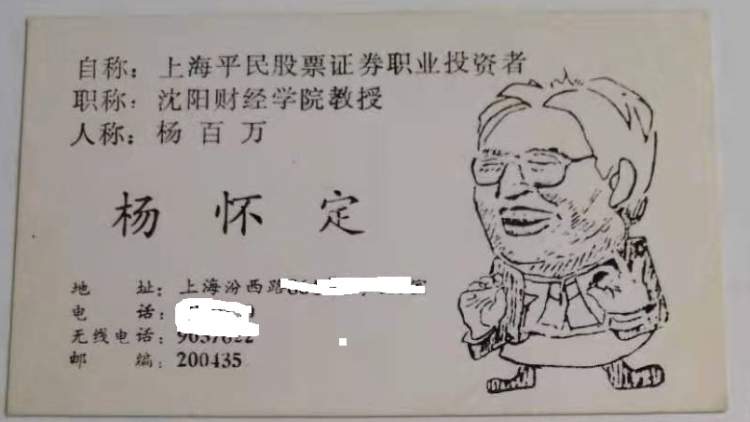 自称：上海平民股票证券职业投资者
职称：沈阳财经学院教授
人称：杨百万
杨怀定
地 址：上海汾西路
电 话：
无线电话：
邮 编：200435